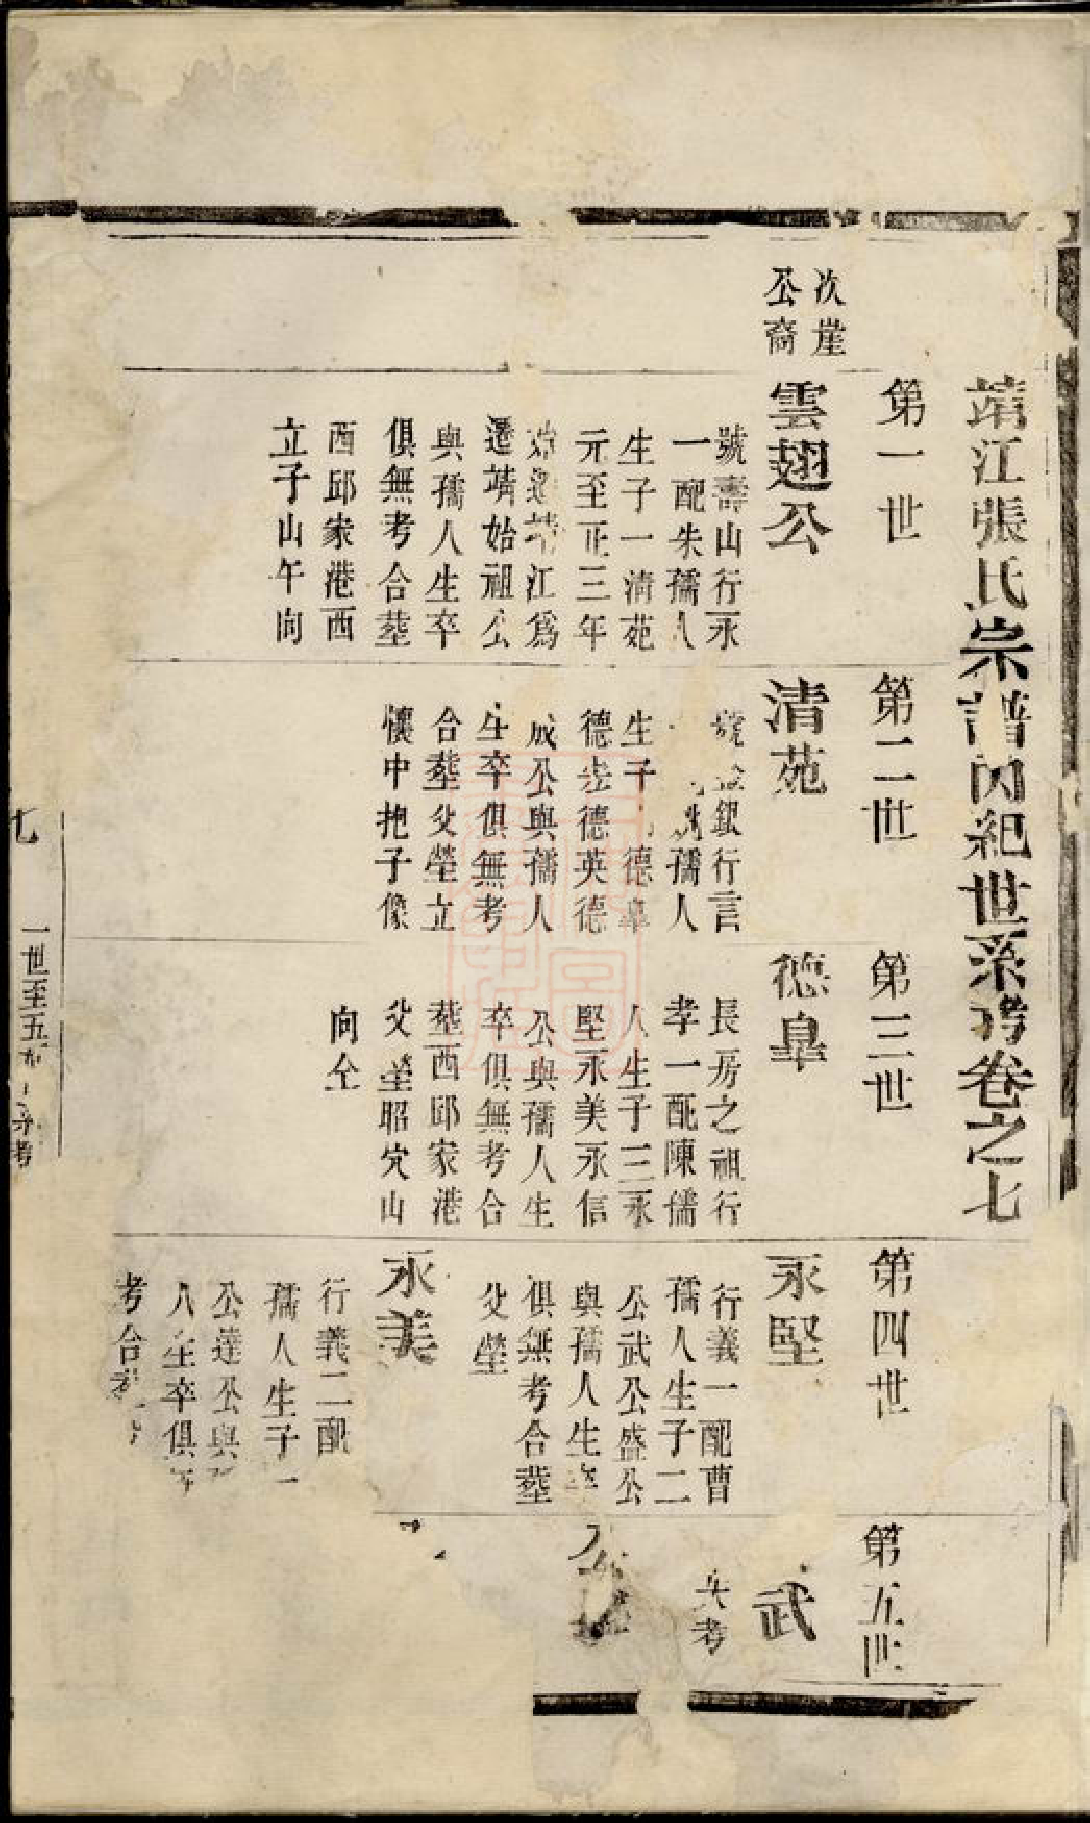 靖江張氏宗譜內紀世系考卷之七
次崖
公裔
第一世
雲翅公
號壽山行永
一配朱孺人
生子一清苑
元至正三年
始遷靖江爲
遷靖始祖公
與孺人生卒
俱無考合塟
西邱家港西
立子山午向
第二世
清苑
號 銀行言
孺人
生子 德臯
德 德英德
成公與孺人
生卒俱無考
合塟父塋立
懷中抱子像
第三世
德臯
長房之祖行
孝一配陳孺
人生子三永
堅永美永信
公與孺人生
卒俱無考合
塟西邱家港
父塋昭穴山
向仝
第四世
永堅
行義一配曹
孺人生子二
公武公盛公
與孺人生卒
俱無考合塟
父塋
永美
行義二配
孺人生子一
公達公與
人生卒俱無
考合塟
第五世
武
失考
公
七
一世至五世 考